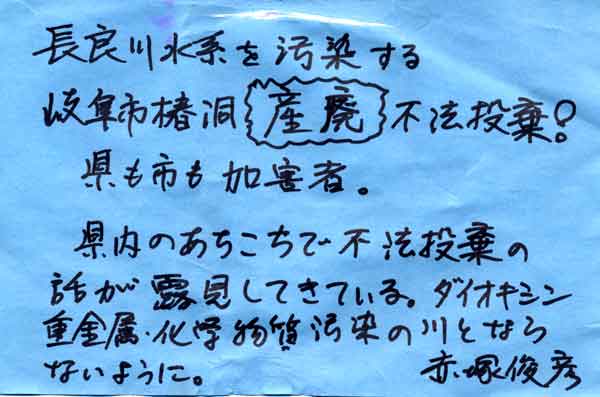 長良川水系を汚染する
岐阜市椿洞産廃不法投棄!
県も市も加害者。
県内のあちこちで不法投棄の
話が露見してきている。ダイオキシン
重金属・化学物質汚染の川となら
ないように。 赤塚俊彦